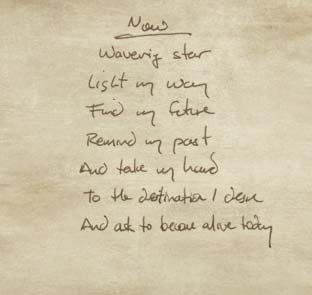 Now
Wavering star
Light my way
Find my future
Remind my past
And take my hand
To the destination I desire
And ask to become alive today